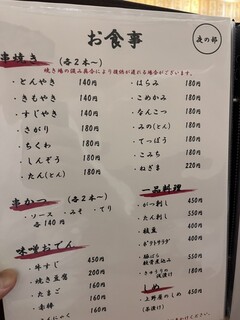 お食事
夜の部
串焼き (各2本〜)
焼き場の混み具合により提供が遅れる場合がございます。
・とんやき 140円
・きもやき 140円
・すじやき 140円
・さがり 180円
・ちくわ 180円
・しんぞう 180円
・たん(とん) 180円
・はらみ 180円
・こめかみ 180円
・なんこつ 180円
・みの(とん) 180円
・てっぽう 180円
・こみち 180円
・ねぎま 220円
串かつ (各2本〜)
・ソース ・みそ ・てり
各140円
味噌おでん
・牛すじ 450円
・焼き豆腐 200円
・たまご 160円
・赤棒 160円
160円
一品料理
・がつ刺し 450円
・たん刺し 550円
・枝豆
・ポテトサラダ
・きゅうりの
しめ
・上野屋のしめ 450円